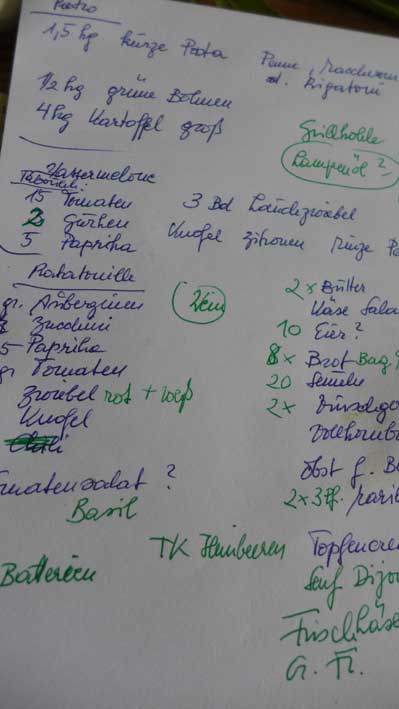 1,5 kg kurze Pasta Penne, Maccheroni
od. Rigatoni
1/2 kg grüne Bohnen
4 kg Kartoffel groß
Grillkohle
Lampenöl ?
Wassermelone
15 Tomaten 3 Bd Lauchzwiebel
2 Gurken
5 Paprika Knofel Zitronen Minze
Ratatouille
gr. Auberginen
Zucchini
5 Paprika
gr Tomaten
Zwiebel rot + weiß
Knofel
Chili
Wein
2 x Butter
Käse
10 Eier ?
8 x Brot Bag
20 Semeln
2 x
Obst f. B
2 x 3
Tomatensalat ?
Basil
TK Himbeeren Topfencre
Batterien
Senf Dijo
Frischkäse
G. Fr.